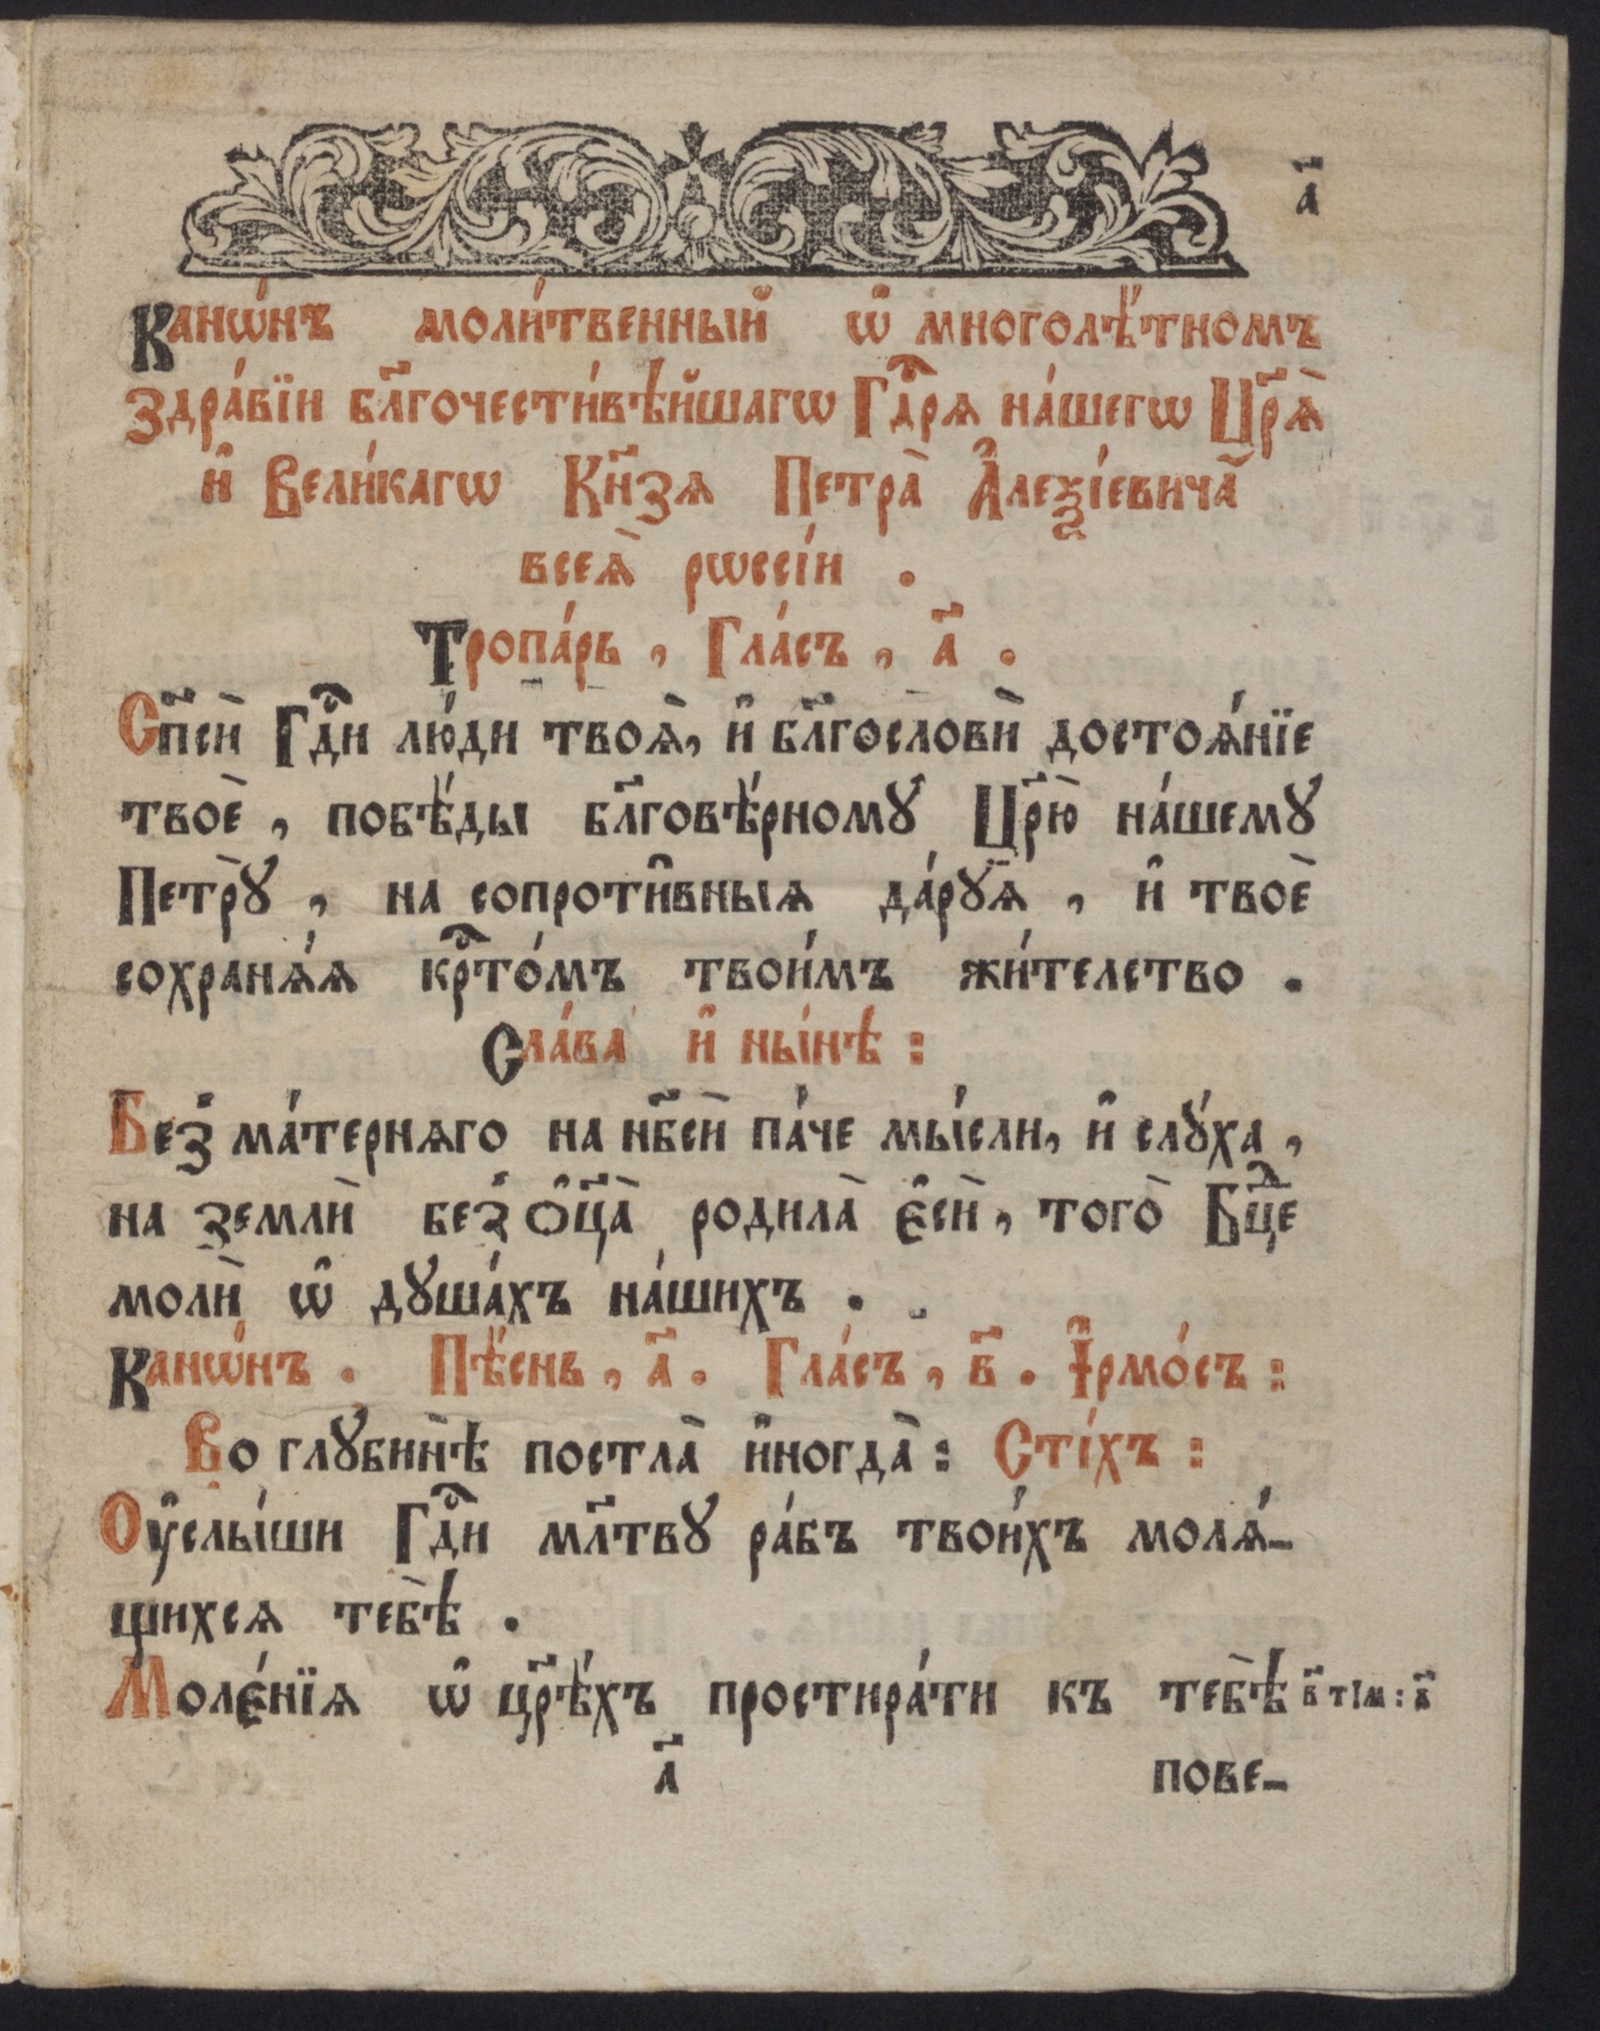 а҃
Канѡ́нъ моли́твенный ѡ҆ многолѣ́тномъ
здра́вїи бл҃гочести́вѣйшагѡ Гдⷭ҇рѧ на́шегѡ Цр҃ѧ̀
и҆ Вели́кагѡ Кн҃зѧ Петра̀ А҆леѯі́евича
всеѧ̀ рѡссі́и .
Тропа́рь , Гла́съ , а҃ .
Сп҃сѝ Гдⷭ҇и лю́ди твоѧ̀, и҆ бл҃гословѝ достоѧ́нїе
твоѐ , побѣ́ды бл҃говѣ́рному Цр҃ю̀ на́шему
Петрꙋ̀ , на сопроти̑вныѧ да́рꙋѧ , и҆ твоѐ
сохранѧ́ѧ крⷭ҇то́мъ твои́мъ жи́телство .
Сла́ва и҆ ны́нѣ :
Без̾ ма́терняго на нб҃сѝ па́че мы́сли, и҆ слꙋ́ха ,
на землѝ без̾ ѻ҆ц҃а̀ родила̀ є҆сѝ , того̀ Бцⷣе
молѝ ѡ҆ дꙋша́хъ на́шихъ .
Канѡ́нъ . Пѣ́снь , а҃ . Гла́съ , в҃ . І҆рмо́съ :
Во глꙋбинѣ̀ постла̀ и҆ногда̀ : Сті́хъ :
Оу҆слы́ши Гдⷭ҇и мл҃твꙋ ра́бъ твои́хъ молѧ́-
щихсѧ тебѣ̀ .
Моле́нїѧ ѡ҆ цр҃ѣ́хъ простира́ти къ тебѣ̀ в҃ тїм : в҃
а҃ пове-